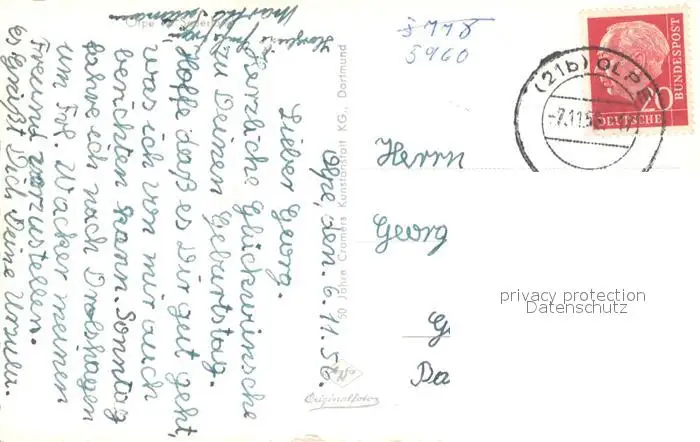 Olpe, den. 6.11.56.
Lieber Georg.
Herzliche Glückwünsche
zu Deinen Geburtstag.
Hoffe daß es Dir gut geht,
was ich von mir auch
berichten kann. Sonntag
fahre ich nach Drolshagen
um Frl. Wacker meinen
Freund vorzustellen.
es grüßt Dich Deine Ursula.
Olpe
50 Jahre Cramers Kunstanstalt KG., Dortmund
Originalfotos
5960
Herrn
Georg
G
Da
(21b) OLPE
-7.11.5
20
DEUTSCHE
BUNDESPOST
privacy protection
Datenschutz